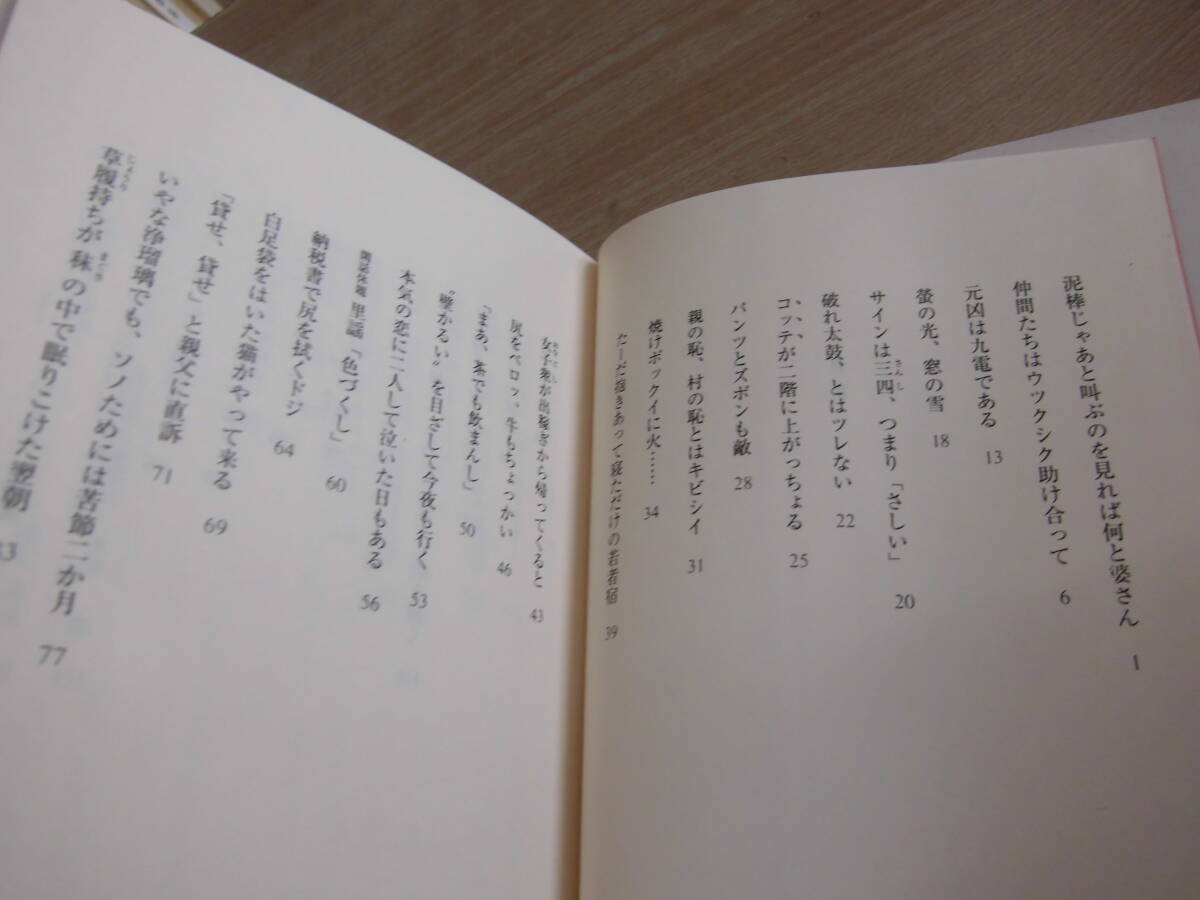 泥棒じゃあと叫ぶのを見れば何と婆さん 1
仲間たちはウツクシク助け合って 6
元凶は九電である 13
螢の光、窓の雪 18
サインは三四、つまり「さしい」 20
さんし
破れ太鼓、とはツレない 22
コッテが二階に上がっちょる 25
パンツとズボンも敵 28
親の恥、村の恥とはキビシイ 31
焼けボックイに火…… 34
たーだ抱きあって寝ただけの若者宿 39
女子衆が出稼ぎから帰ってくると 43
尻をペロッ、牛もちょっかい 46
「まあ、茶でも飲まんし」 50
〝壁かるい〟を目ざして今夜も行く 53
本気の恋に二人して泣いた日もある 56
閑話休題 里謡「色づくし」 60
納税書で尻を拭くドジ 64
白足袋をはいた猫がやって来る 69
「貸せ、貸せ」と親父に直訴 71
いやな浄瑠璃でも、ソノためには苦節二か月 77
草履持ちが秣の中で眠りこけた翌朝
じょうり
まぐさ